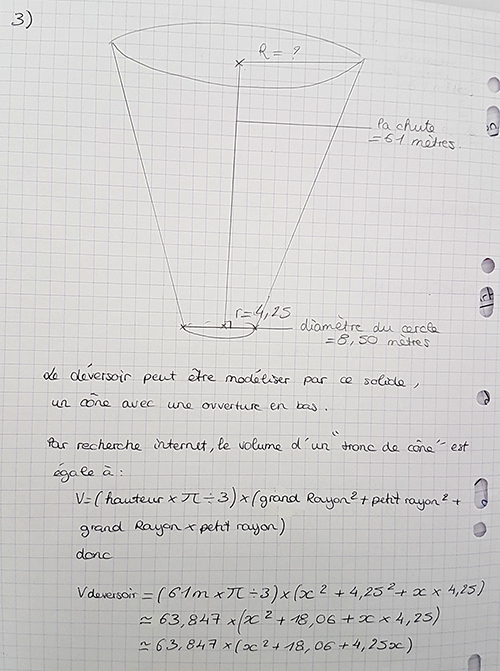 3)
R = ?
la chute
= 61 mètres.
r = 4,25
diamètre du cercle
= 8,50 mètres
Le déversoir peut être modéliser par ce solide,
un cône avec une ouverture en bas.
Par recherche internet, le volume d'un "tronc de cône" est
égale à :
V = (hauteur × π ÷ 3) × (grand Rayon² + petit rayon² +
grand Rayon × petit rayon)
donc
Vdeversoir = (61m × π ÷ 3) × (x² + 4,25² + x × 4,25)
≃ 63,847 × (x² + 18,06 + x × 4,25)
≃ 63,847 × (x² + 18,06 + 4,25x)